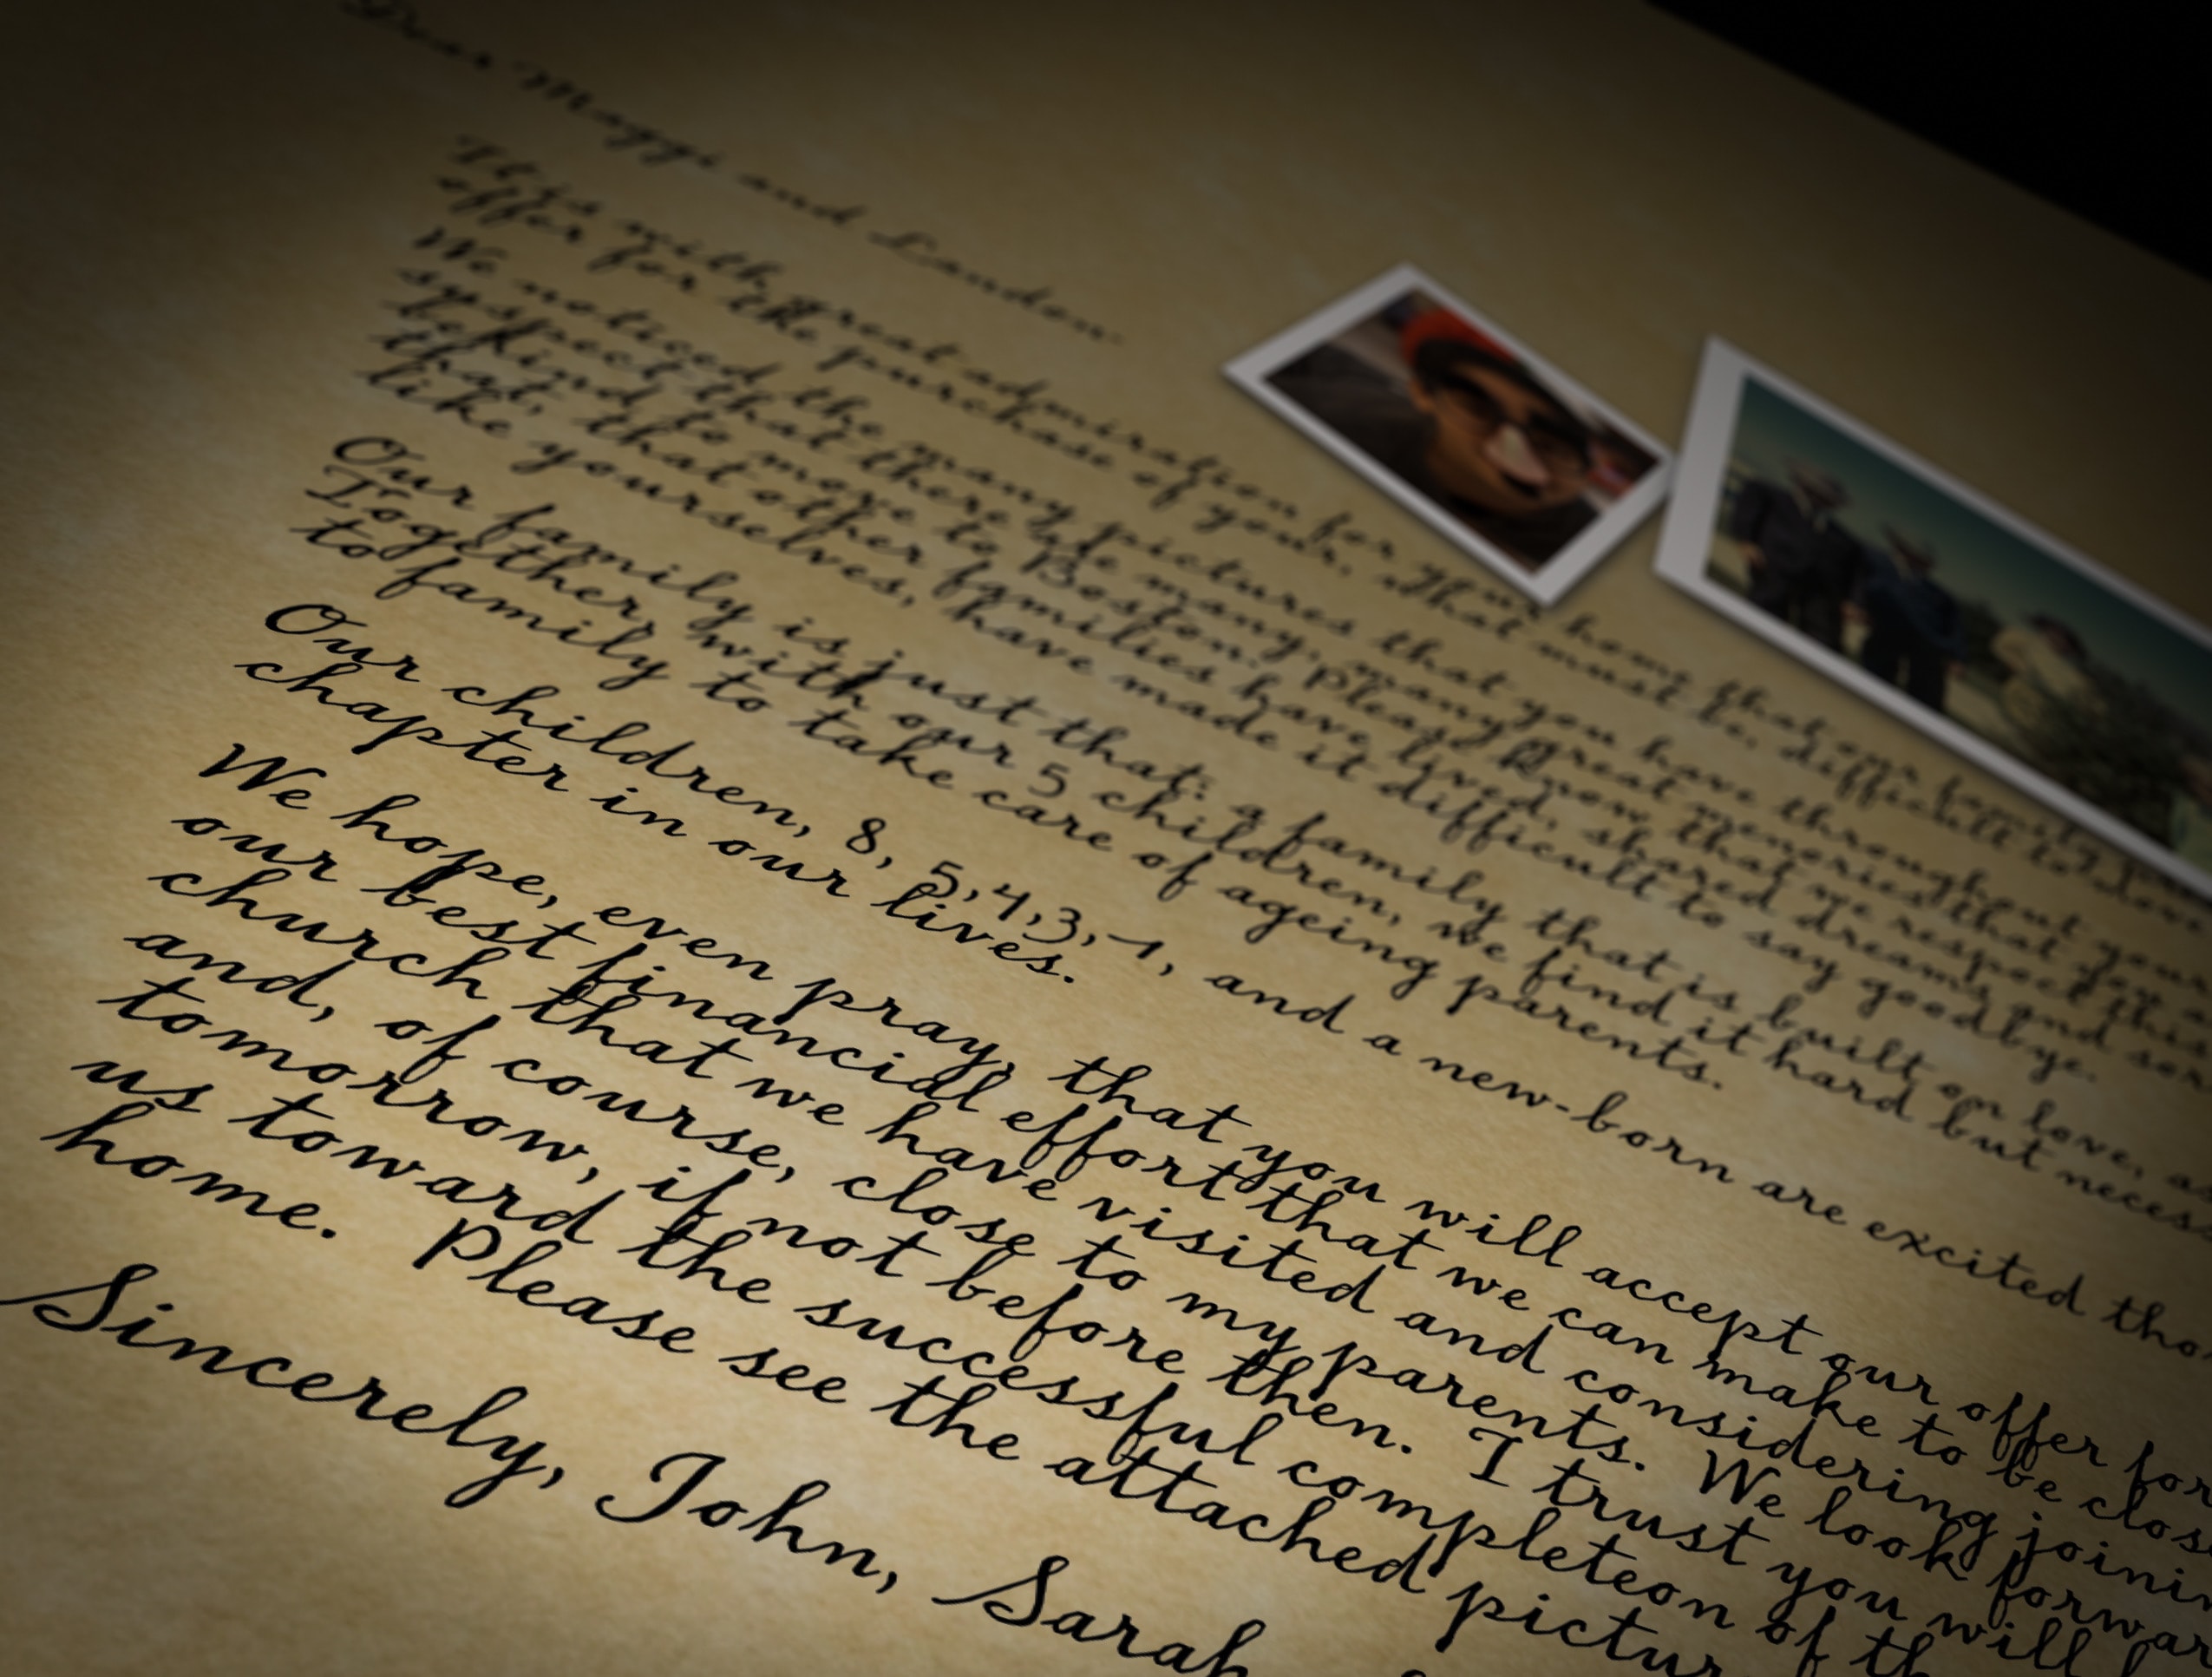 Dear Maggi and Landon:
It is with great admiration for your home that our family
offer for the purchase of your. That must be, difficult to
We noticed the many pictures that you have throughout your
suspect that there be many, many great memories that
behind to move to Boston. Please know that we respect this
that, that other families have lived, shared dreams and
like yourselves, have made it difficult to say goodbye.
Our family is just that: a family that is built on love,
Together with our 5 children, we find it hard but
to family to take care of ageing parents.
Our children, 8, 5, 4, 3, 1, and a new-born are excited
chapter in our lives.
We hope, even pray, that you will accept our offer for
our best financial effort that we can make to be
church that we have visited and considering
and, of course, close to my parents. We look
tomorrow, if not before then. I trust you will
us toward the successful completeon of
home. Please see the attached
Sincerely, John, Sarah